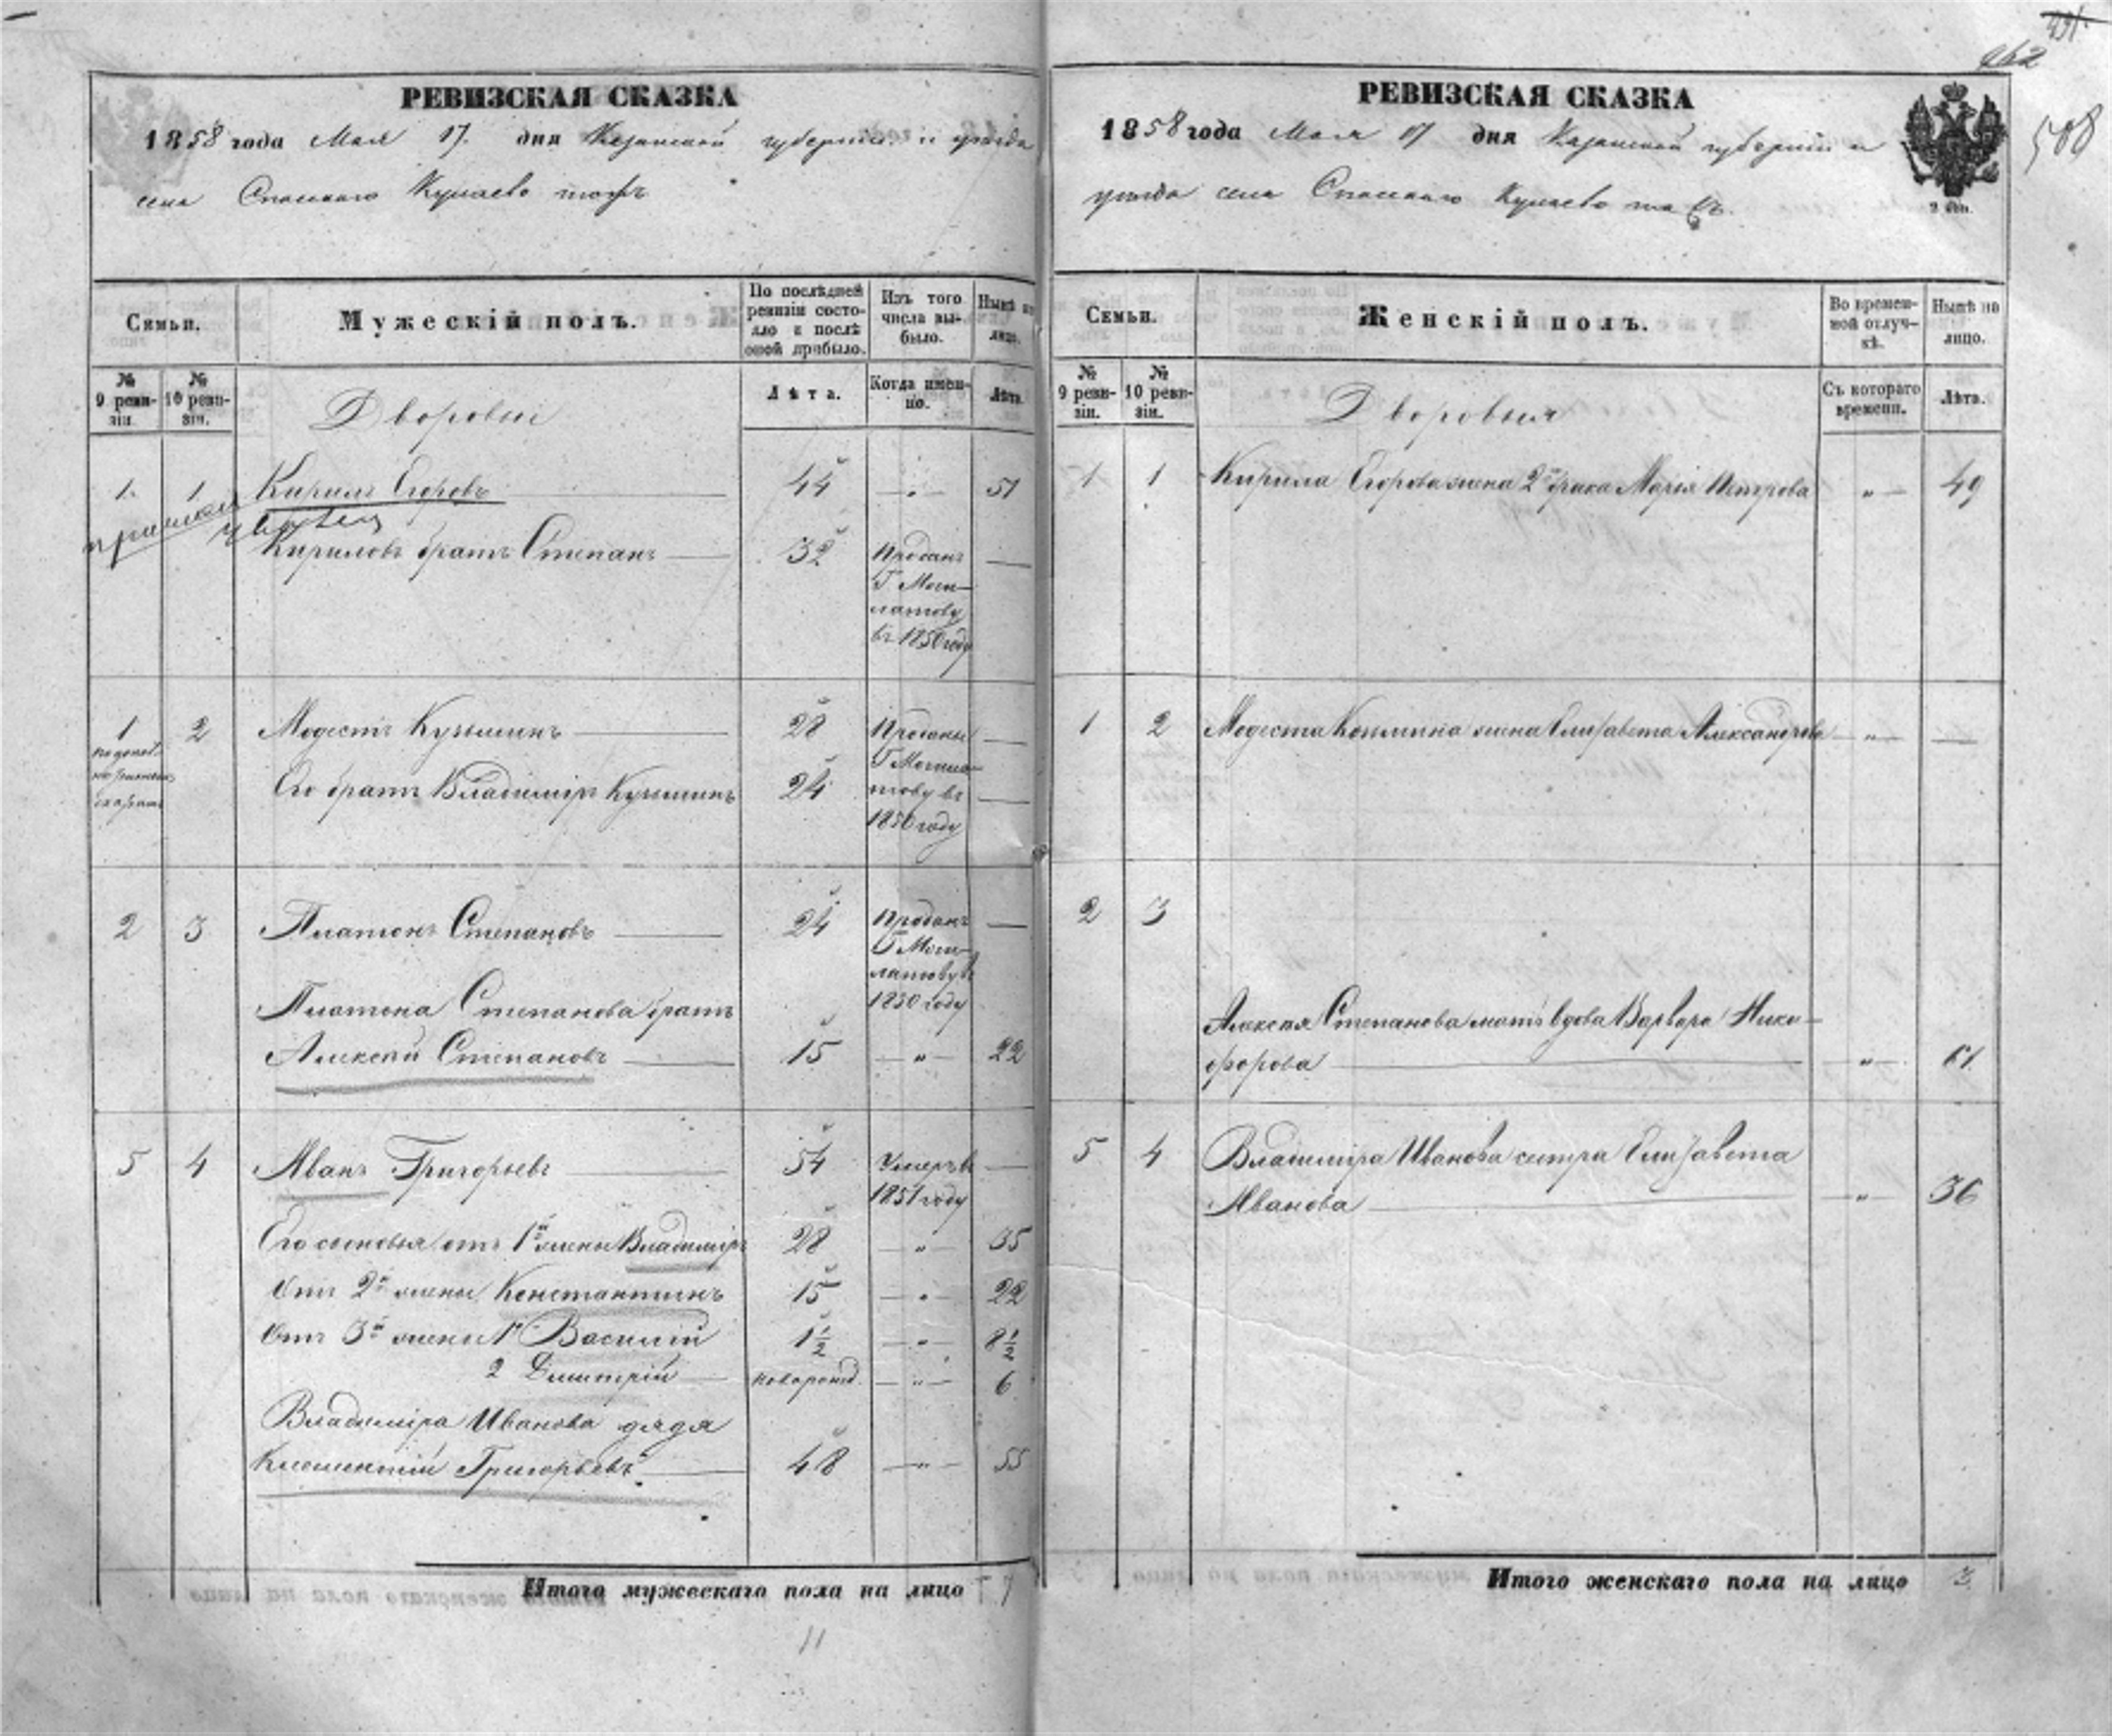 РЕВИЗСКАЯ СКАЗКА
1858 года Мая 17. дня Казанской губернiи и уѣзда
села Спаскаго Кулаево тожъ
Сѣмьи.
Мужескій полъ.
По послѣдней ревизіи состояло и послѣ оной прибыло.
Изъ того числа выбыло.
Нынѣ на лицо.
№ 9 ревизіи.
№ 10 ревизіи.
Дворовые
Лѣта.
Когда именно.
Лѣта.
1. 1 Кирилъ Егоровъ 44 — „ — 51
Кириловъ братъ Степанъ 32 Проданъ
Г.
въ 1850 году
1 2 Модестъ Кузьминъ 28 Проданы
Его братъ Владиміръ Кузьминъ 24
1850 году
2 3 Платонъ Степановъ 24 Проданъ
Г.
1850 году
Платона Степанова братъ
Алексѣй Степановъ 15 — „ — 22
5 4 Иванъ Григорьевъ 54 Умеръ въ
1851 году
Его сыновья отъ 1й жены Владиміръ 28 — „ — 35
Отъ 2й жены Константинъ 15 — „ — 22
Отъ 3й жены 1 Василій 1½ — „ — 8½
2 Дмитрій новорожд. — „ — 6
Владиміра Иванова дядя
Григорьевъ 48 — „ — 55
Итого мужескаго пола на лицо 7
11
462
508
РЕВИЗСКАЯ СКАЗКА
1858 года Мая 17 дня Казанской губернiи и
уѣзда села Спаскаго Кулаево тожъ.
Семьи.
Женскій полъ.
Во временной отлучкѣ.
Нынѣ на лицо.
№ 9 ревизіи.
№ 10 ревизіи.
Дворовыя
Съ котораго времени.
Лѣта.
1 1 Кирила Егорова жена 2го брака Марія Петрова „ — 49
1 2 Модеста Козьмина жена Елизавета Александрова — „ — —
2 3
Алексѣя Степанова мать вдова Варвара Ники-
форова — „ — 61
5 4 Владиміра Иванова сестра Елизавета
Иванова — „ — 36
Итого женскаго пола на лицо 3